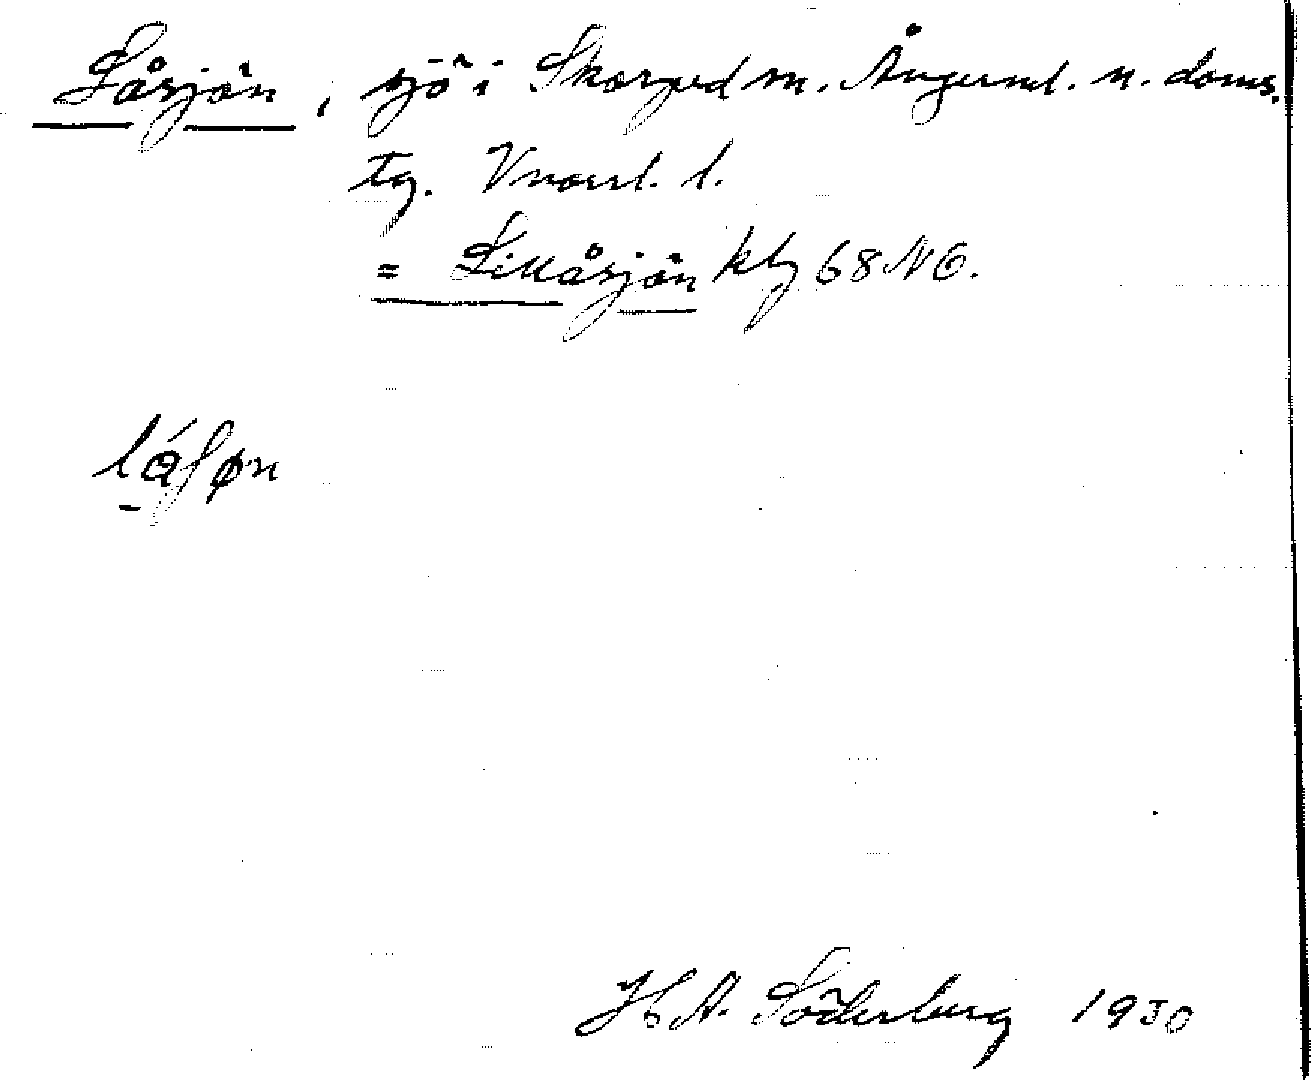 Låsjön, sjö i Skorped sn. Ångerml. n. doms.
tg. Vnorrl. l.
= Lillåsjön kbg 68 NO.
lǻſøn
H A. Söderberg 1930